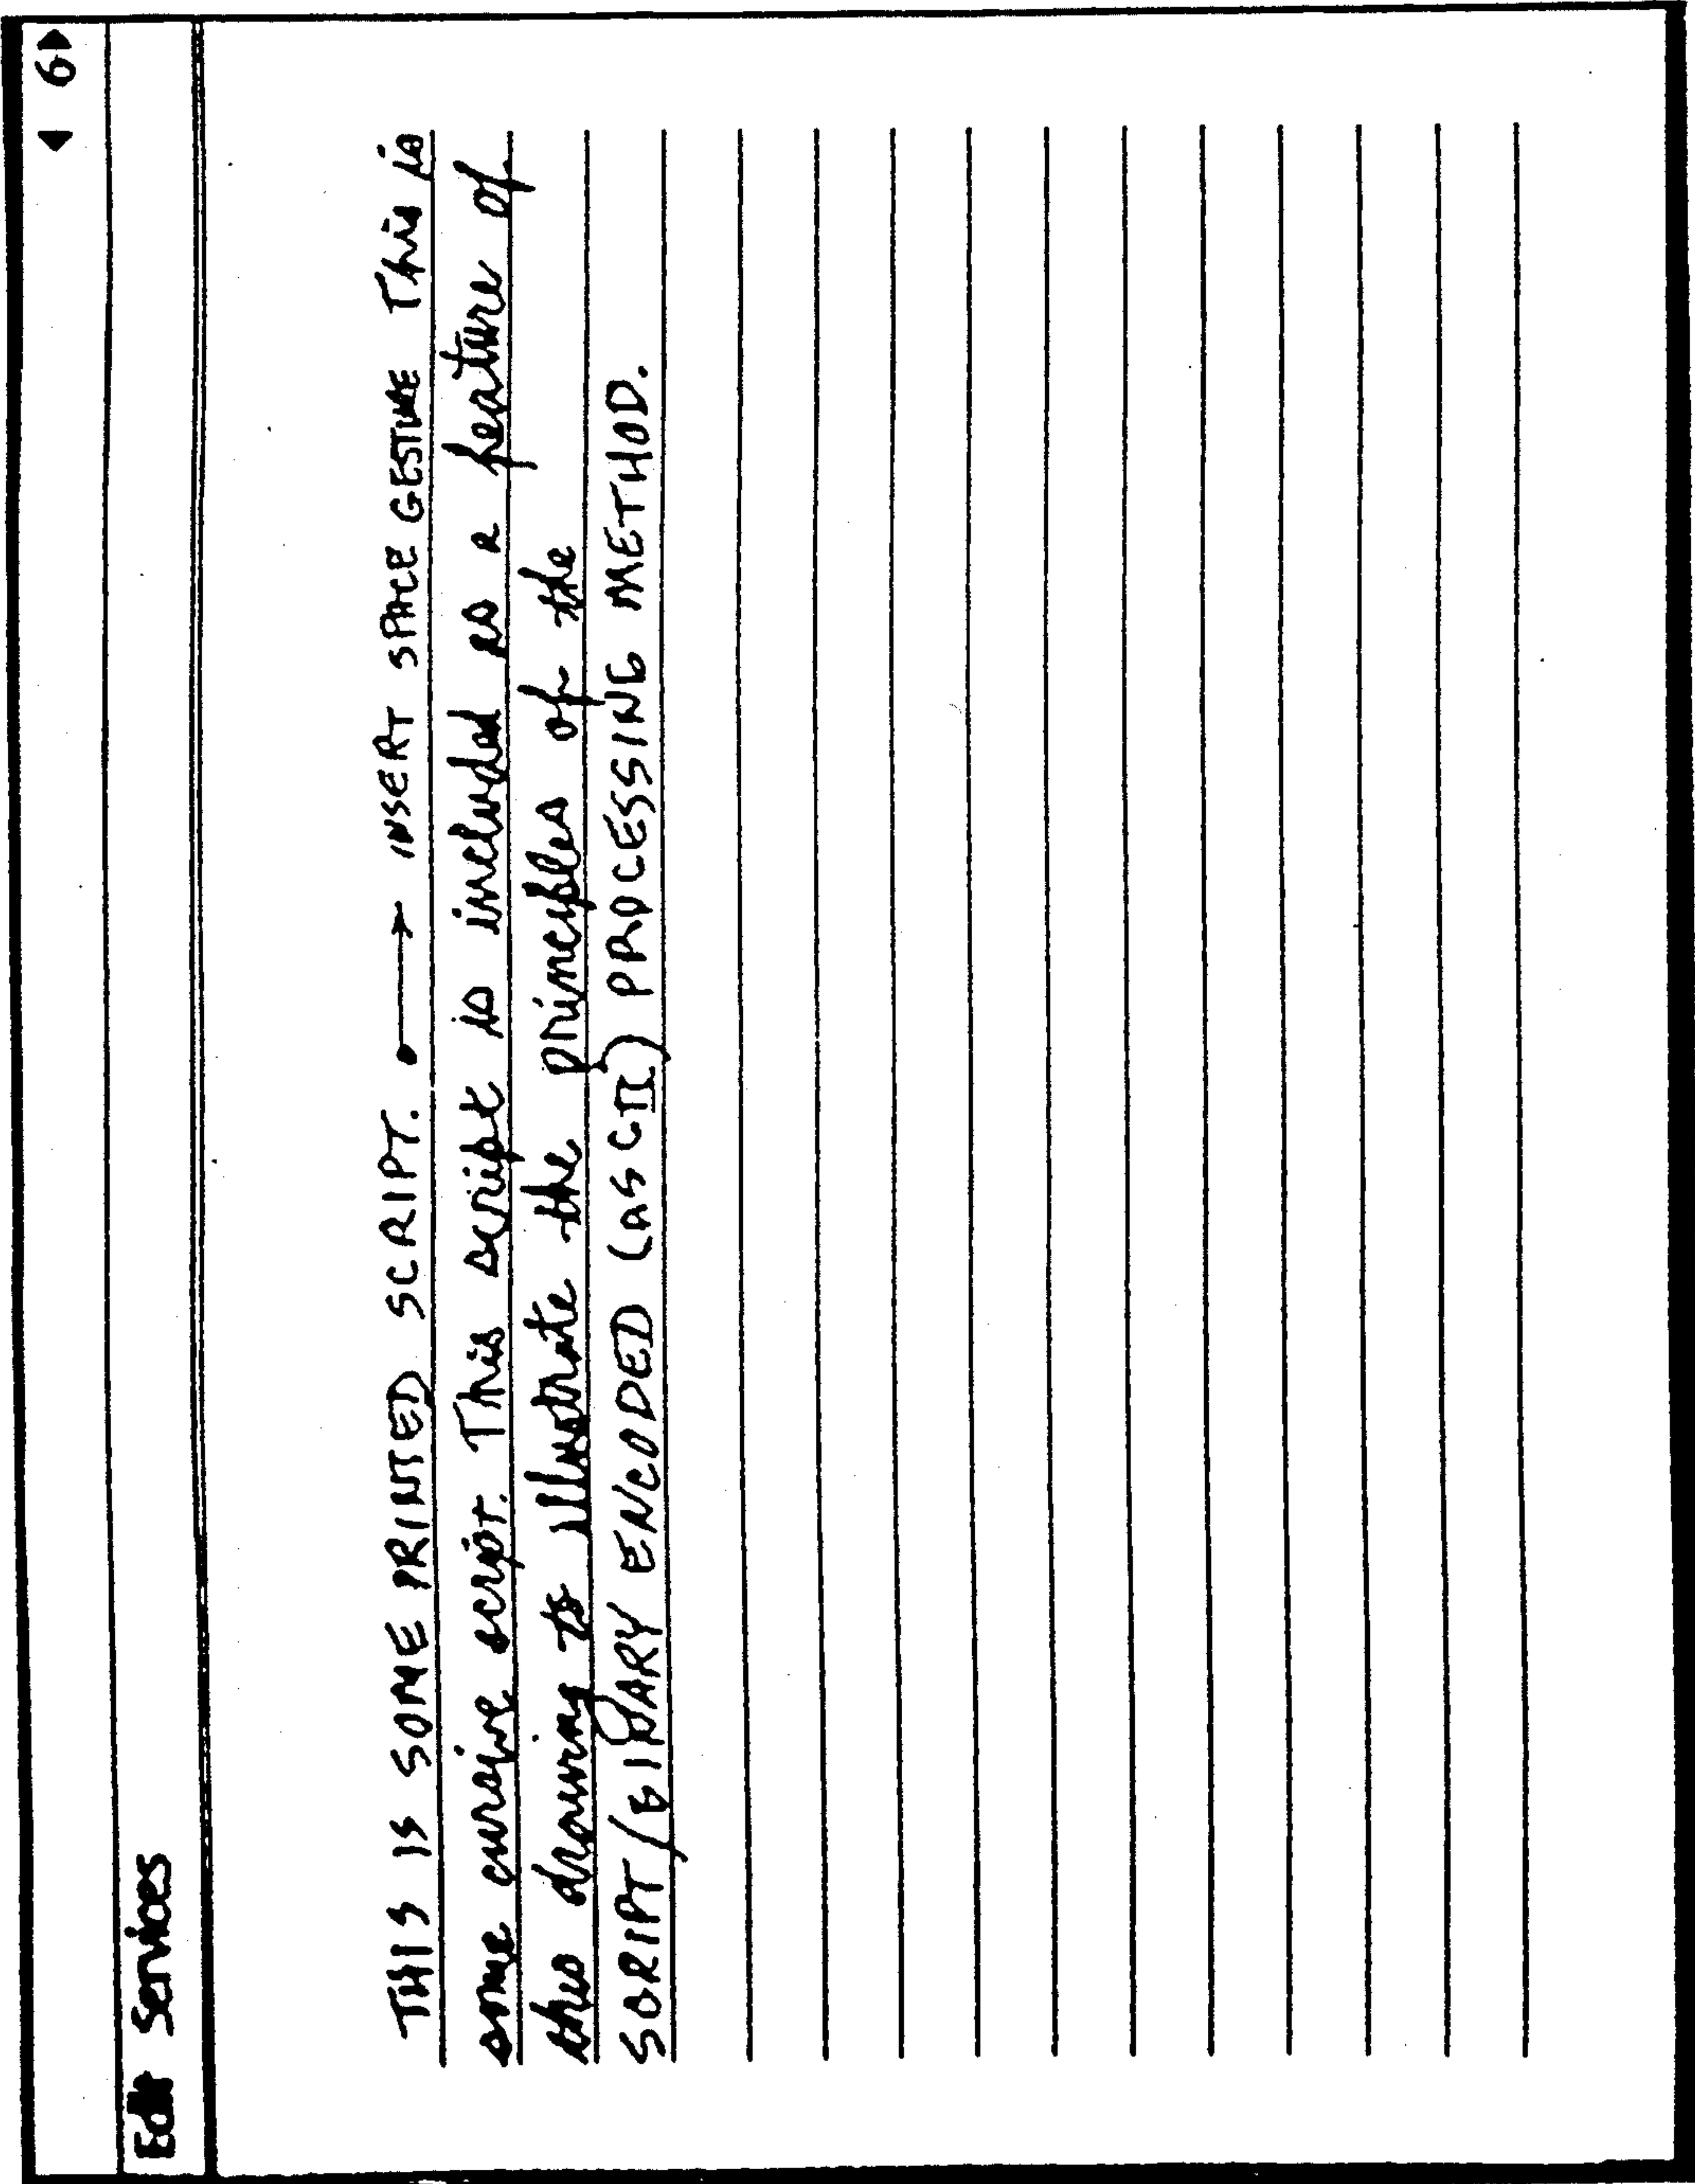 ◀ 6 ▶
Edit Services
THIS IS SOME PRINTED SCRIPT. •→ INSERT SPACE GESTURE This is
some cursive script. This script is included as a feature of
this drawing to illustrate the principles of the
SCRIPT/BINARY ENCODED (ASCII) PROCESSING METHOD.